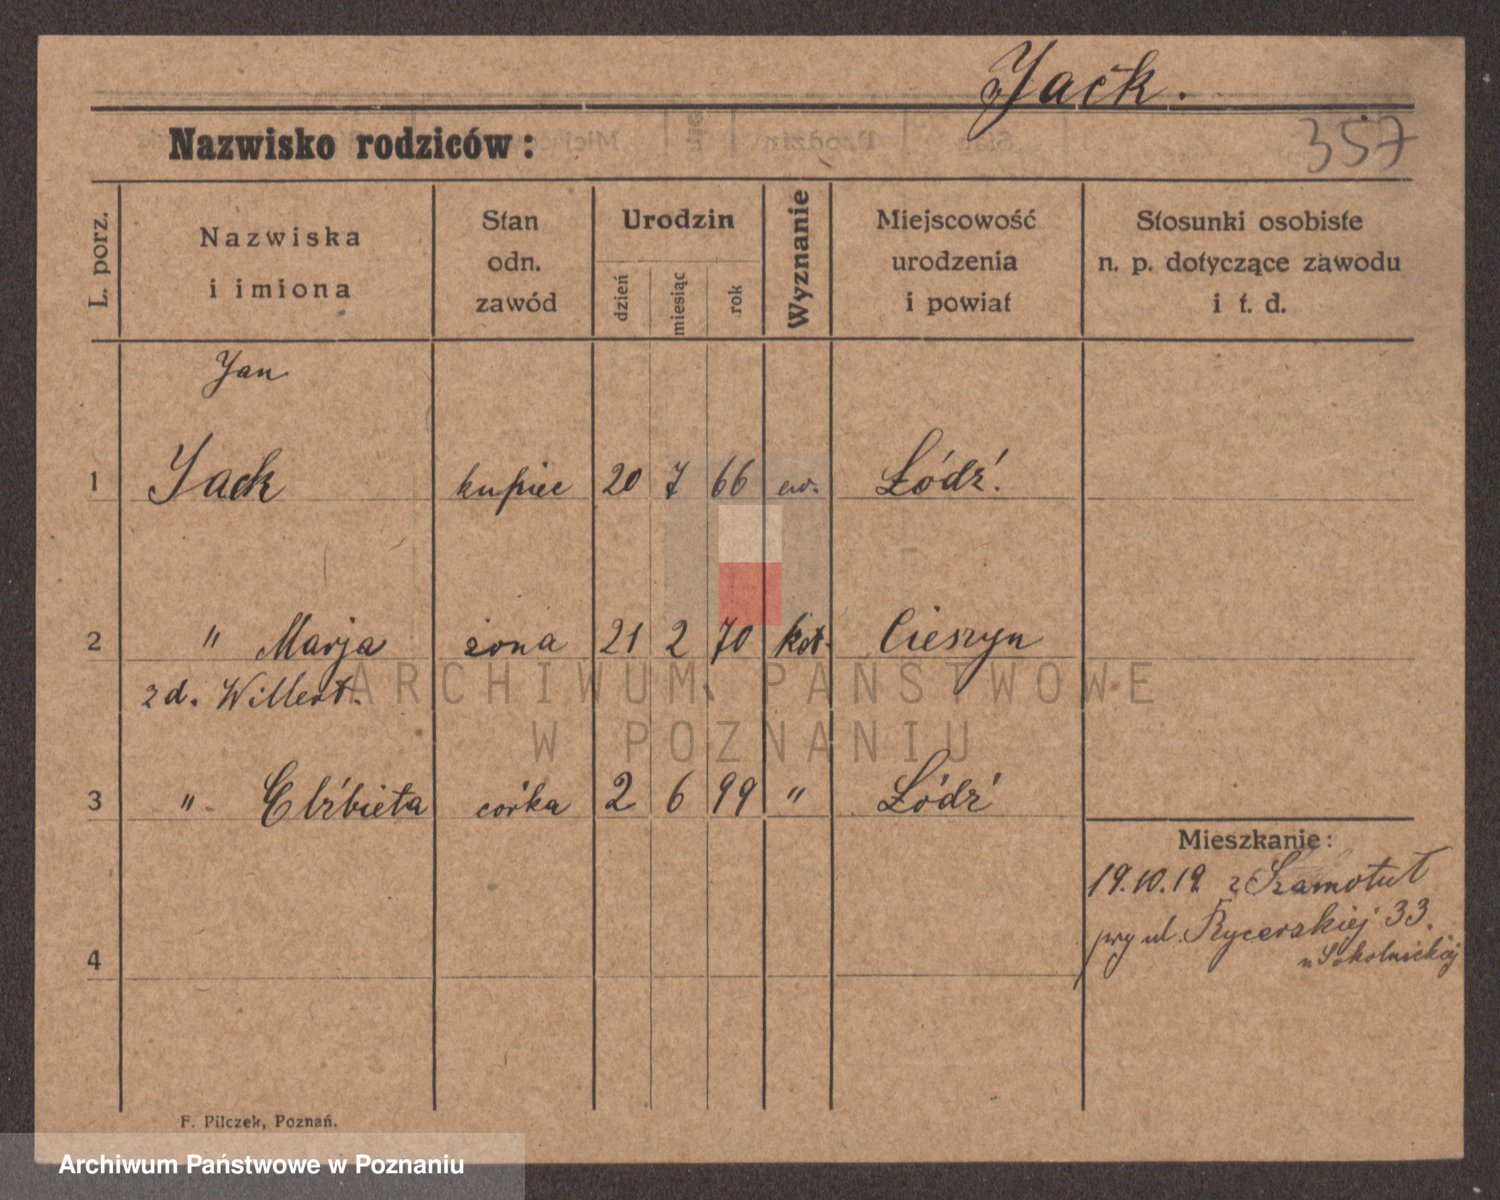 Jack.
Nazwisko rodziców:
357
L. porz.
Nazwiska
i imiona
Stan
odn.
zawód
Urodzin
dzień
miesiąc
rok
Wyznanie
Miejscowość
urodzenia
i powiat
Stosunki osobiste
n. p. dotyczące zawodu
i t. d.
Jan
1 Jack kupiec 20 7 66 ew. Łódź.
2 " Marja żona 21 2 70 kat. Cieszyn
z d. Willert.
3 " Elżbieta córka 2 6 99 " Łódź
Mieszkanie:
19.10.19. z Szamotuł
przy ul. Rycerskiej 33.
u Sokolnickiej
4
F. Pilczek, Poznań.
ARCHIWUM PAŃSTWOWE
W POZNANIU
Archiwum Państwowe w Poznaniu